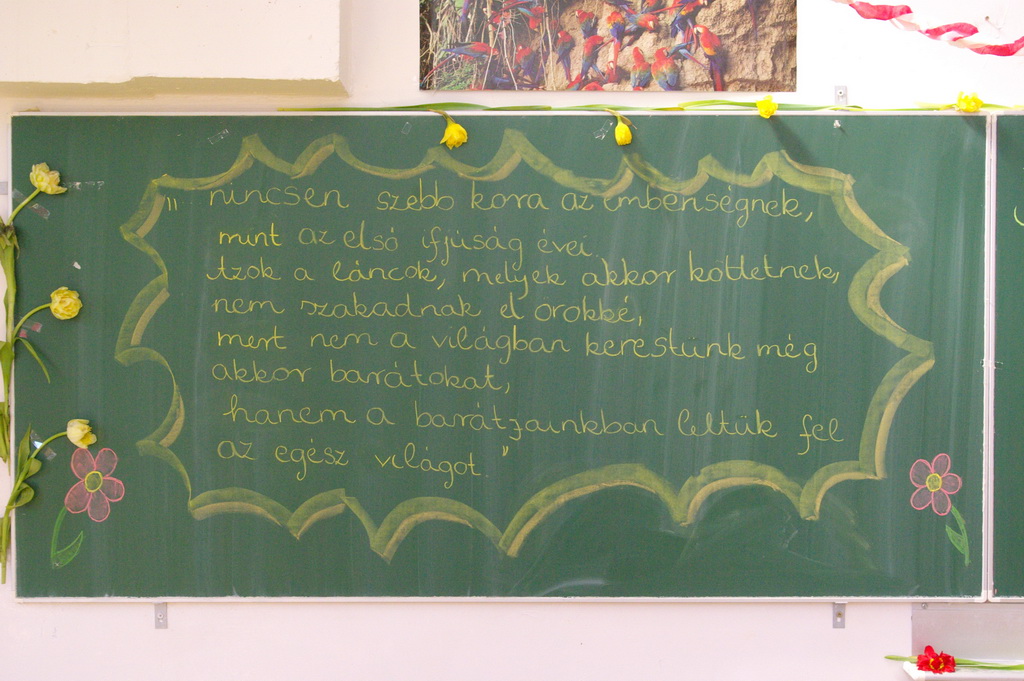 „ nincsen szebb kora az emberiségnek,
mint az első ifjúság évei.
Azok a láncok, melyek akkor köttetnek,
nem szakadnak el örökké,
mert nem a világban kerestünk még
akkor barátokat,
hanem a barátjainkban leltük fel
az egész világot."